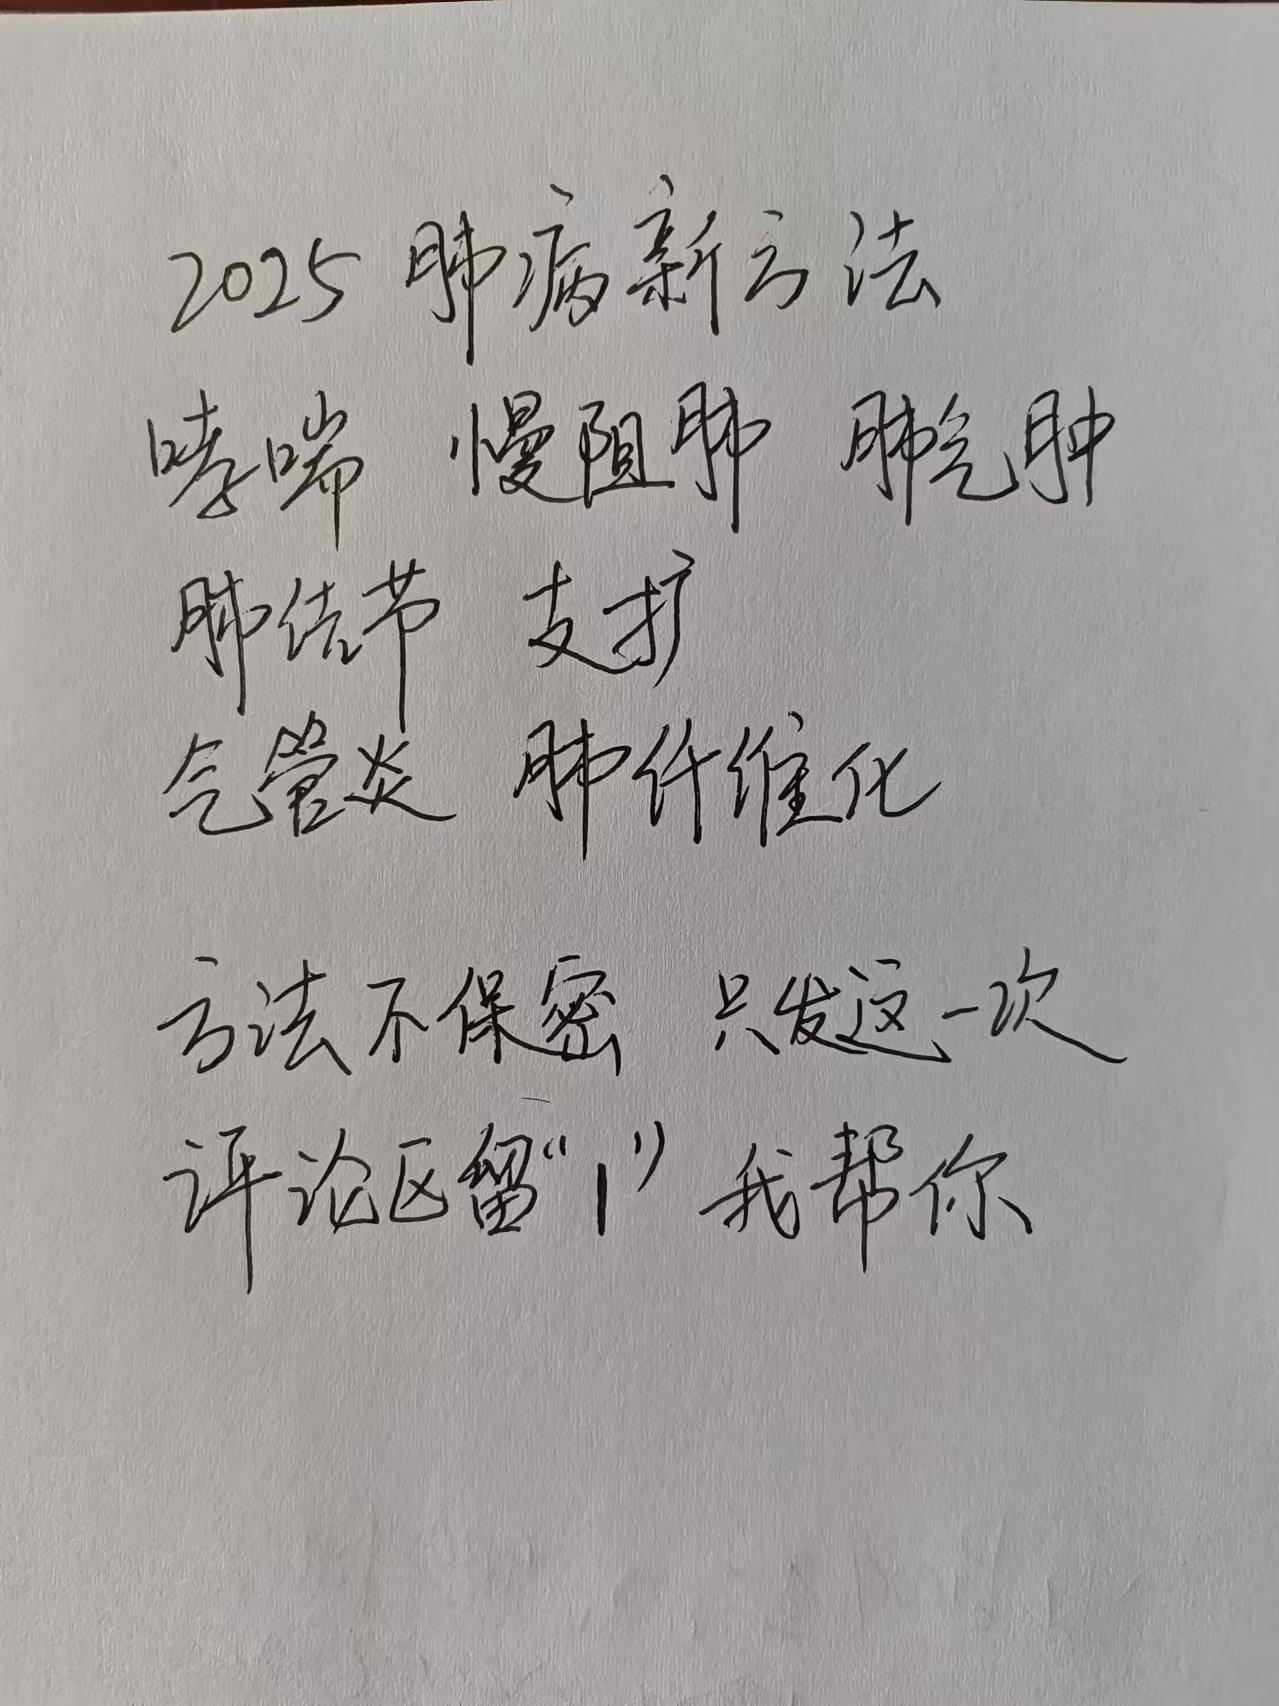 2025 肺病新方法
哮喘 慢阻肺 肺气肿
肺结节 支扩
气管炎 肺纤维化
方法不保密 只发这一次
评论区留“1” 我帮你